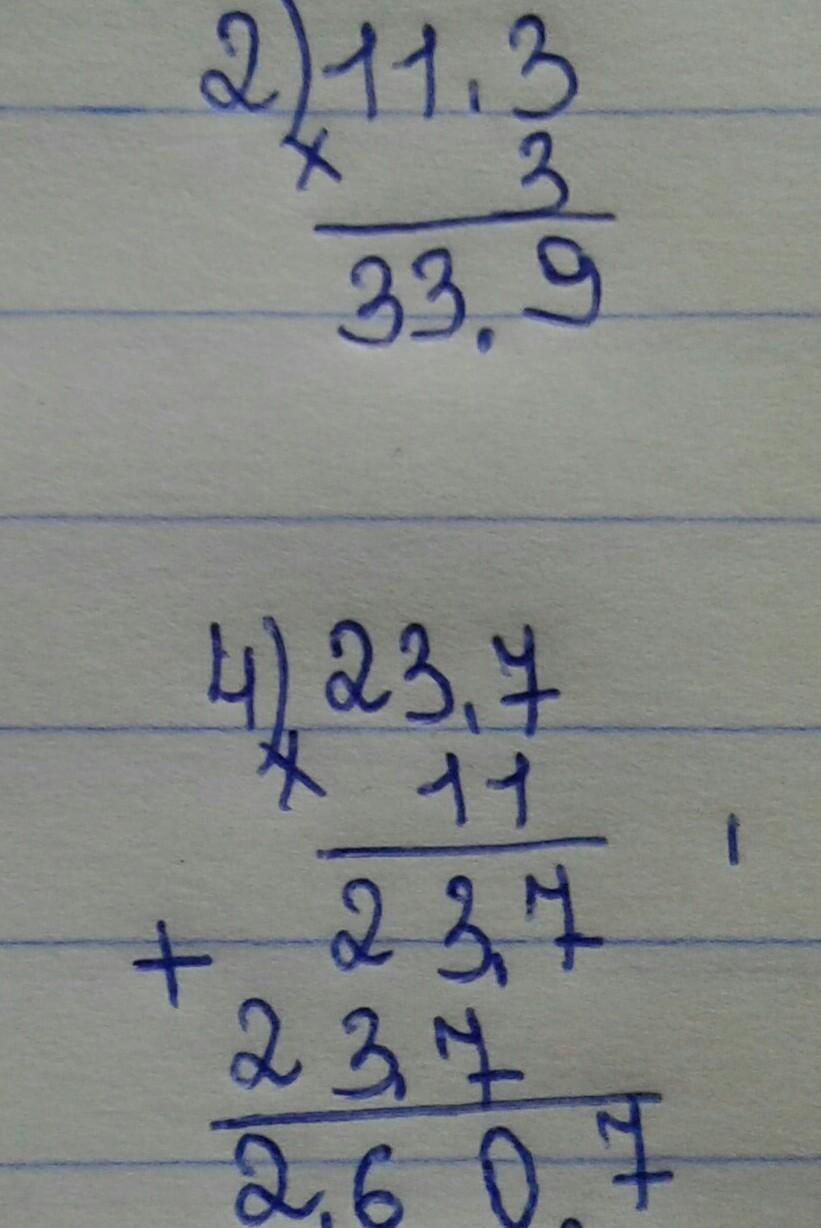 2) 11.3
x 3
33.9
4) 23.7
x 11
23.7
+
23.7
2.60.7